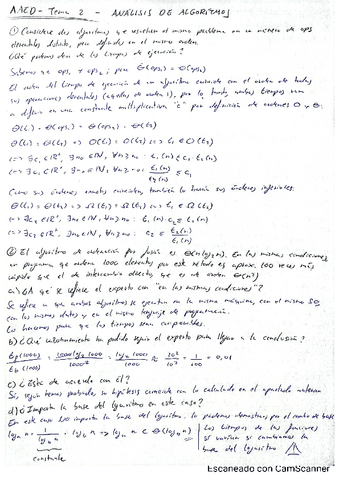 AACD - Tema 2 - ANÁLISIS DE ALGORITMOS
① Considere dos algoritmos que resuelven el mismo problema con un número de ops
elementales distinto, pero definidos en el mismo orden.
¿Qué podemos decir de los tiempos de ejecución?
Sabemos que ops₁ ≠ ops₂; pero Θ(ops₁) = Θ(ops₂)
El orden del tiempo de ejecución de un algoritmo coincide con el orden de todas
sus operaciones elementales, por lo tanto ambos tiempos van
a diferir en una constante multiplicativa "c" por definición de órdenes O y Θ.
Θ(t₁) = Θ(ops₁) = Θ(ops₂) = Θ(t₂)
Θ(t₁) = Θ(t₂) => O(t₁) = O(t₂) => t₁ ∈ O(t₂)
<=> ∃c₁ ∈ ℝ⁺, ∃n₀ ∈ ℕ, ∀n≥n₀ : t₁(n) ≤ c₁·t₂(n)
<=> ∃c₁ ∈ ℝ⁺, ∃n₀ ∈ ℕ, ∀n≥n₀ : t₁(n)/t₂(n) ≤ c₁
Como sus órdenes exactos coinciden, también lo harán sus órdenes inferiores:
Θ(t₁) = Θ(t₂) => Ω(t₁) = Ω(t₂) => t₁ ∈ Ω(t₂)
② El algoritmo de ordenación por fusión es Θ(n log n). En las mismas condiciones,
un programa que ordena 1000 elementos por este método es aprox. 100 veces más
rápido que el de intercambio directo, que es de orden Θ(n²)
a) ¿A qué se refiere el experto con "en las mismas condiciones"?
Se refiere a que ambos algoritmos se ejecutan en la misma máquina, con el mismo SO,
con los mismos datos y en el mismo lenguaje de programación.
Lo hacemos para que los tiempos sean comparables.
b) ¿Qué razonamiento ha podido seguir el experto para llegar a la conclusión?
c) ¿Estás de acuerdo con él?
Sí, su hipótesis coincide con lo calculado en el apartado anterior
d) ¿Importa la base del logaritmo en este caso?
En este caso NO importa la base del logaritmo, lo podemos demostrar por el cambio de base
constante
Los tiempos de las funciones
sí varían si cambiamos la
base del logaritmo
Escaneado con CamScanner